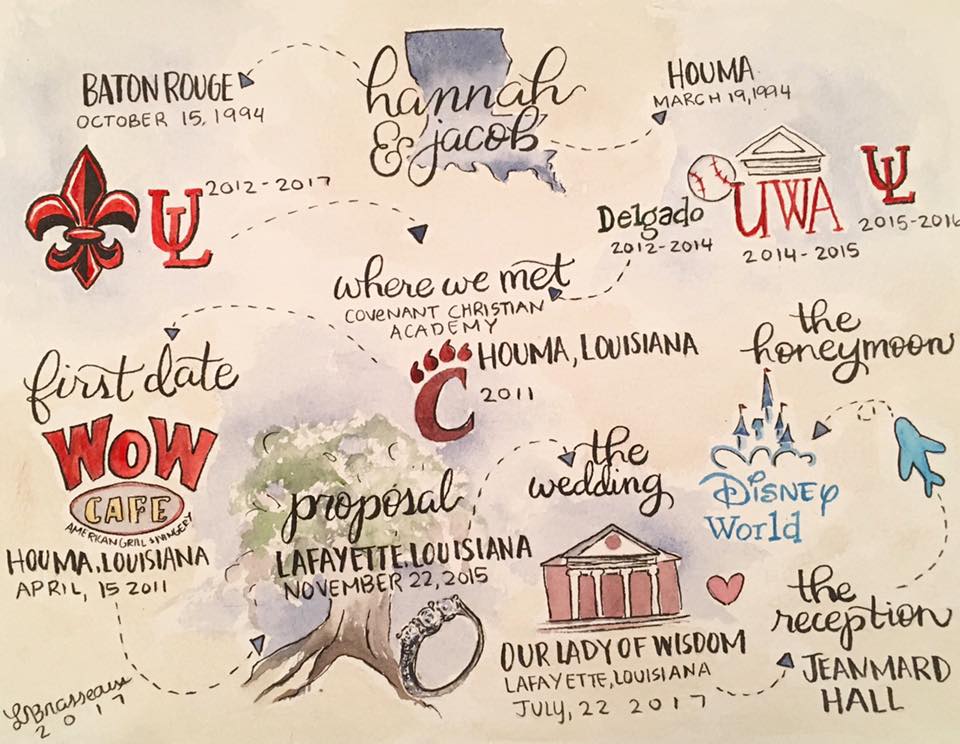 hannah
& jacob
BATON ROUGE
OCTOBER 15, 1994
HOUMA
MARCH 19, 1994
UL
2012-2017
Delgado
2012-2014
UWA
2014-2015
UL
2015-2016
where we met
COVENANT CHRISTIAN
ACADEMY
C
HOUMA, LOUISIANA
2011
first date
WOW
CAFE
AMERICAN GRILL & WINGERY
HOUMA, LOUISIANA
APRIL, 15 2011
proposal
LAFAYETTE, LOUISIANA
NOVEMBER 22, 2015
the
wedding
OUR LADY OF WISDOM
LAFAYETTE, LOUISIANA
JULY, 22 2017
the
reception
JEANMARD
HALL
the
honeymoon
DISNEY
World
LBrasseaux
2017